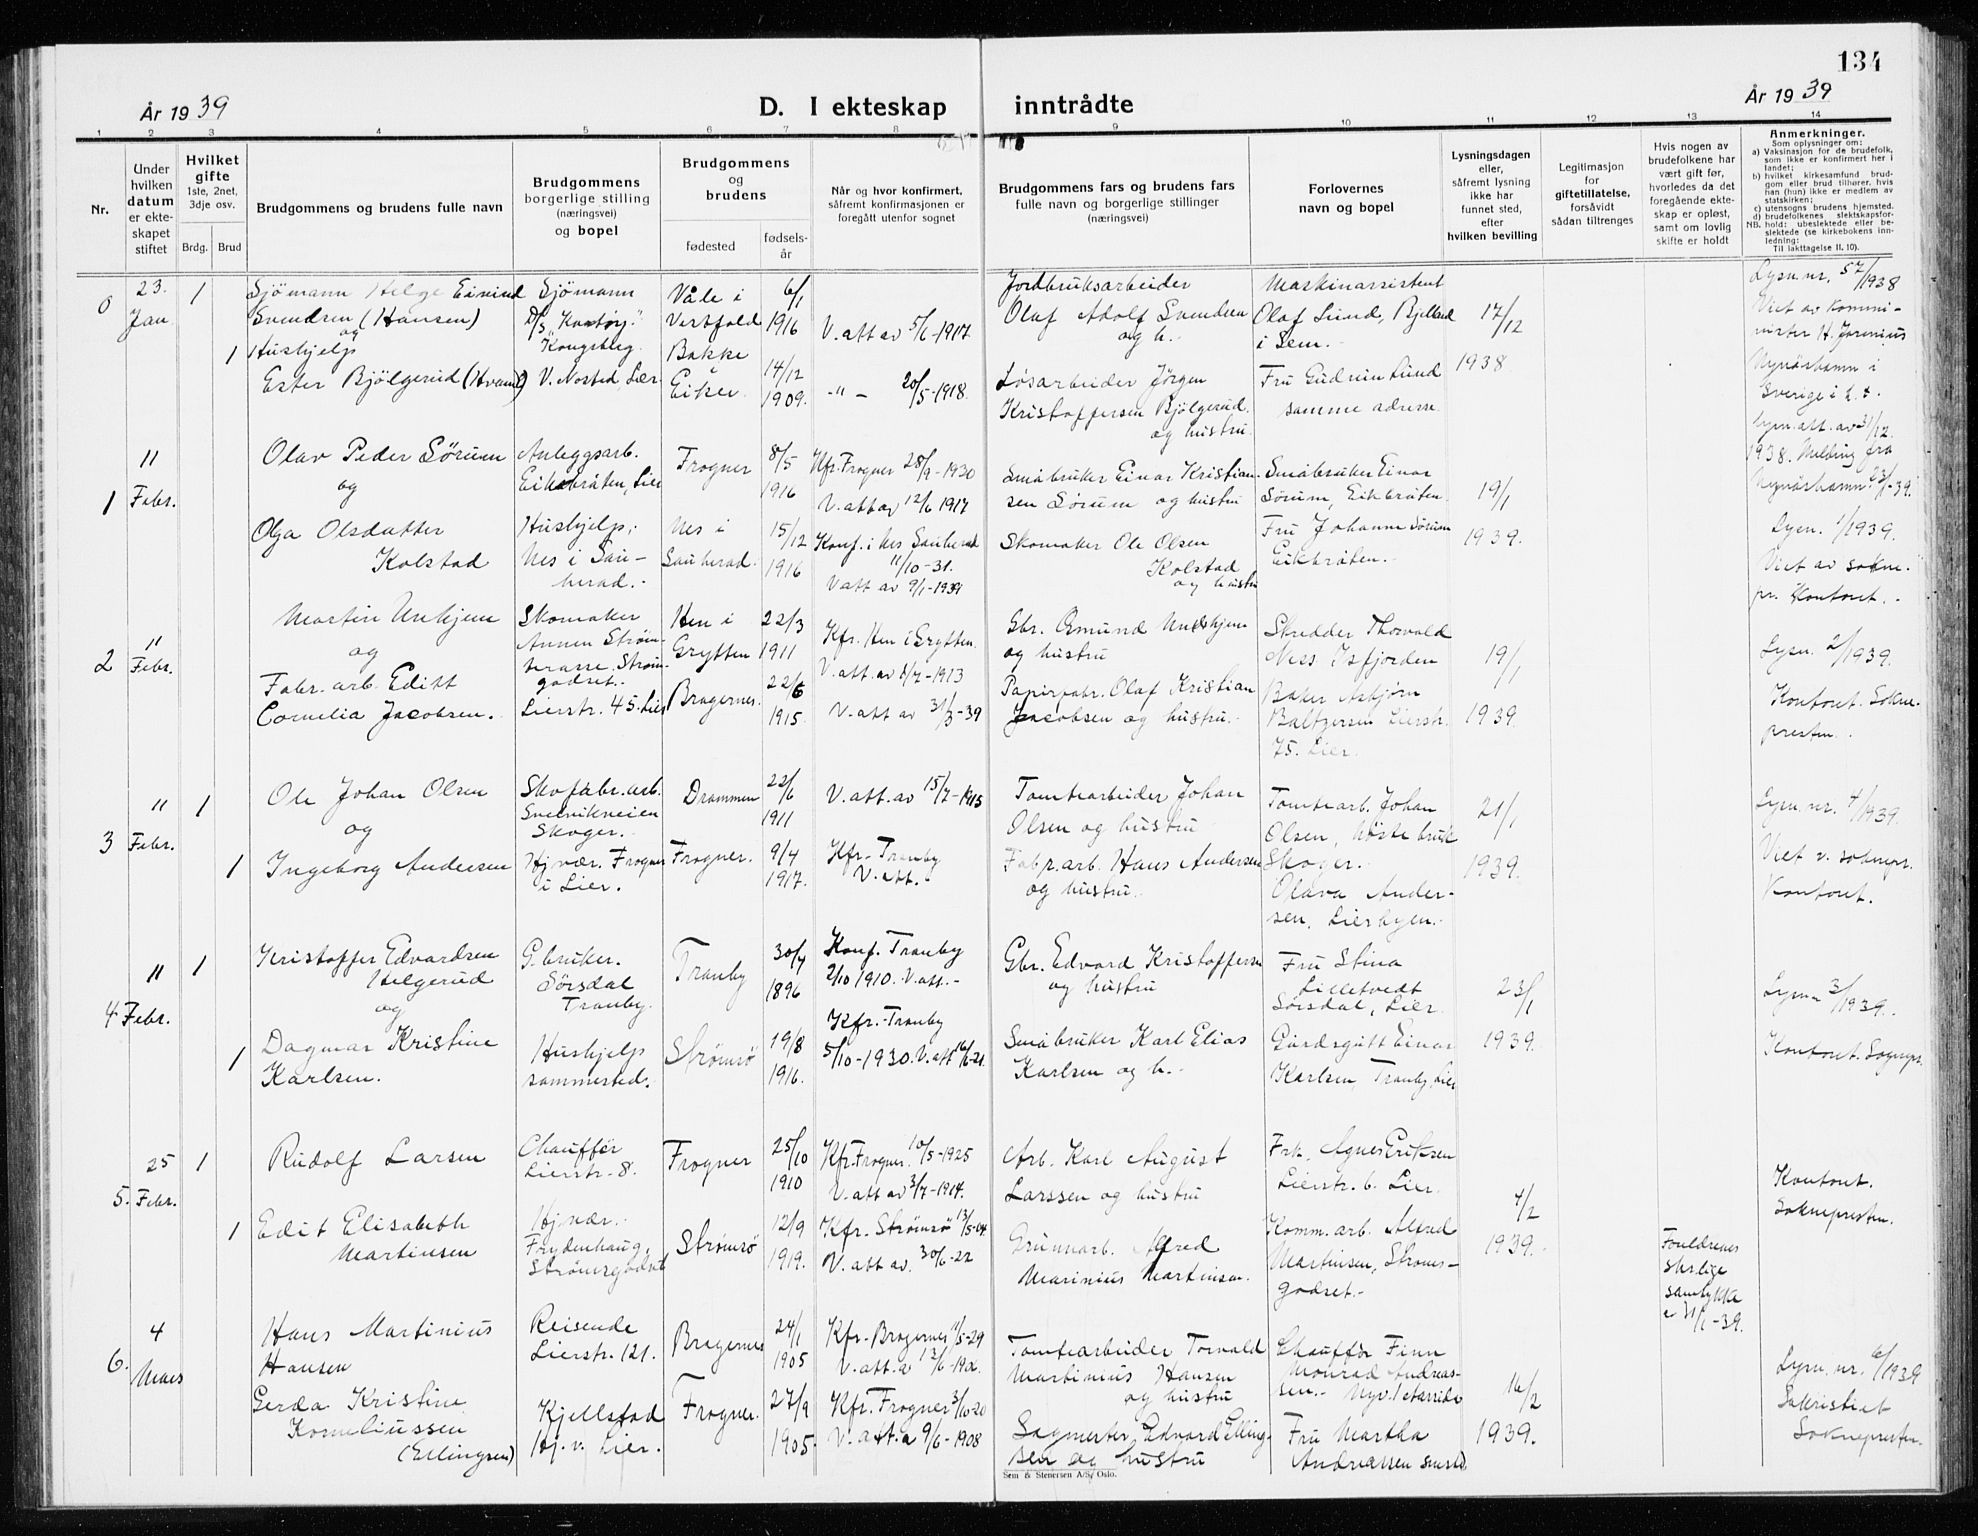 134
År 1939
D. I ekteskap inntrådte
År 1939
1 2 3 4 5 6 7 8 9 10 11 12 13 14
Nr.
Under hvilken datum er ekteskapet stiftet
Hvilket gifte
1ste, 2net, 3dje osv.
Brdg. Brud
Brudgommens og brudens fulle navn
Brudgommens borgerlige stilling (næringsvei) og bopel
Brudgommens og brudens
fødested
fødsels-år
Når og hvor konfirmert, såfremt konfirmasjonen er foregått utenfor sognet
Brudgommens fars og brudens fars fulle navn og borgerlige stillinger (næringsvei)
Forlovernes navn og bopel
Lysningsdagen eller, såfremt lysning ikke har funnet sted, efter hvilken bevilling
Legitimasjon for giftetillatelse, forsåvidt sådan tiltrenges
Hvis nogen av brudefolkene har vært gift før, hvorledes da det foregående ekteskap er opløst, samt om lovlig skifte er holdt
Anmerkninger.
Som oplysninger om:
a) Vaksinasjon for de brudefolk, som ikke er konfirmert her i landet;
b) hvilket kirkesamfund brudgom eller brud tilhører, hvis han (hun) ikke er medlem av statskirken;
c) utensogns brudens hjemsted.
d) brudefolkenes slektskapsforhold: ubeslektede eller beslektede (se kirkebokens innledning:
NB.
Til iakttagelse II. 10).
0
23. Jan
1
Sjömann Helge Eivind
Svendsen (Hansen)
og
Sjömann
Kongsberg
Våle i
Vestfold
6/1
1916
V. att av 5/1-1917
Jordbruksarbeider
Olaf Adolf Svendsen
og h.
Maskinassistent
Olaf Lund,
i Sem.
17/12
1938
Lysn. nr. 57/1938
1
Hushjelp
Ester Bjölgerud
V. Nøsted, Lier
Bakke
i
Eiker
14/12
1909.
-"- 20/5-1918.
Løsarbeider Jörgen
Kristoffersen Bjölgerud.
og hustru
Fru Gudrun Lund
samme adresse
Sverige i
Lysn. att. av 31/12
1938. Melding fra
1
11 Febr.
Olav Peder Sörum
og
Anleggsarb.
Eikbråten, Lier
Frogner
8/5
1916
Kfr. Frogner 28/9-1930
V. att av 12/6 1917
Småbruker Einar Kristian-
sen Sörum og hustru
Småbruker Einar
Sörum, Eikbråten
19/1
1939.
Lysn. 1/1939.
Viet av sokne-
pr. Kontoret.
Olga Olsdatter
Kolstad
Hushjelp,
Nes i Sau-
herad.
Nes i
Sauherad.
15/12
1916
Konf. i Nes Sauherad
11/10-31.
V att av 9/1-1939
Skomaker Ole Olsen
Kolstad
og hustru
Fru Johanne Sörum
Eikbråten.
2
11 Febr.
Martin Unhjem
og
Skomaker
Annen Ström-
terasse. Ström-
godset.
Hen i
Grytten
22/3
1911
Kfr. Hen i Grytten
V. att. av 1/7-1913
Gbr. Osmund Unhjem
og hustru
Skredder Thorvald
Ness Isfjorden
19/1
1939.
Lysn. 2/1939.
Kontoret. Sokne-
presten.
Fabr. arb. Editt
Cornelia Jacobsen.
Lierstr. 45. Lier
Bragernes.
22/6
1915.
V. att av 31/3-39
Papirfabr. Olaf Kristian
Jacobsen og hustru.
Baker Asbjørn
Baltzersen Lierstr.
75. Lier.
3
11 Febr.
1
Ole Johan Olsen
og
Skofabr. arb.
Svelvikveien
Skoger.
Drammen
22/6
1911
V. att. av 15/7-1915
Tomtearbeider Johan
Olsen og hustru
Tomtearb. Johan
Olsen,
Skoger.
21/1
1939.
Lysn. nr. 4/1939.
Viet v. soknepr.
Kontoret.
1
Ingeborg Andersen
Hj.vær. Frogner
i Lier.
Frogner.
9/4
1917.
Kfr. Tranby
V. att.
Fabr. arb. Hans Andersen
og hustru.
Olava Ander-
sen. Lierbyen.
4
11 Febr.
1
Kristoffer Edvardsen
Helgerud
og
G.bruker.
Sörsdal
Tranby.
Tranby
30/7
1896
Konf. Tranby
2/10 1910. V. att.
Gbr. Edvard Kristoffersen
og hustru
Fru Stina
Lilletvedt
Sörsdal, Lier
23/1
1939.
Lysn. 3/1939.
Kontoret. Sognepr.
1
Dagmar Kristine
Karlsen.
Hushjelp
sammested.
Strömsö
19/8
1916.
Kfr. Tranby
5/10-1930. V. att 16/6-21.
Småbruker Karl Elias
Karlsen og h.
Gårdsgutt Einar
Karlsen Tranby, Lier
5.
25 Febr.
1
Rudolf Larsen
Chauffør
Lierstr. 8.
Frogner
25/10
1910
Kfr. Frogner. 10/5-1925
V. att av 3/7-1914.
Arb. Karl August
Larssen og hustru
Frk. Agnes Eriksen
Lierstr. 6. Lier.
4/2
1939.
Kontoret.
Soknepresten.
1
Edit Elisabeth
Martinsen
Hj.vær.
Frydenhaug,
Strömsgodset
Strömsö
12/9
1919.
Kfr. Strömsö
V. att av. 30/6-22
Grunnarb. Alfred
Marinius Martinsen.
Komm. arb. Alfred
Martinsen, Stroms-
godset.
Foreldrenes
skr.lige
samtykke
31/1-39.
6.
4 Mars
Hans Martinius
Hansen
Reisende
Lierstr. 121.
Bragernes
24/1
1905
Kfr. Bragernes 11/5-29
Tomtearbeider Torvald
Martinius Hansen
og hustru
Chauffør Finn
Monrad Andreas-
sen.
16/2
1939.
Lysn. nr. 6/1939
Sakristiet
Soknepresten.
Gerda Kristine
Korneliussen
(Ellingsen)
Kjellstad
Hj. v. Lier.
Frogner.
27/9
1905.
Kfr. Frogner 3/10-20
V. att. a 9/6-1908
Sagmester Edvard Elling-
sen og hustru
Fru Martha
Andreassen
Sem & Stenersen A/S, Oslo.